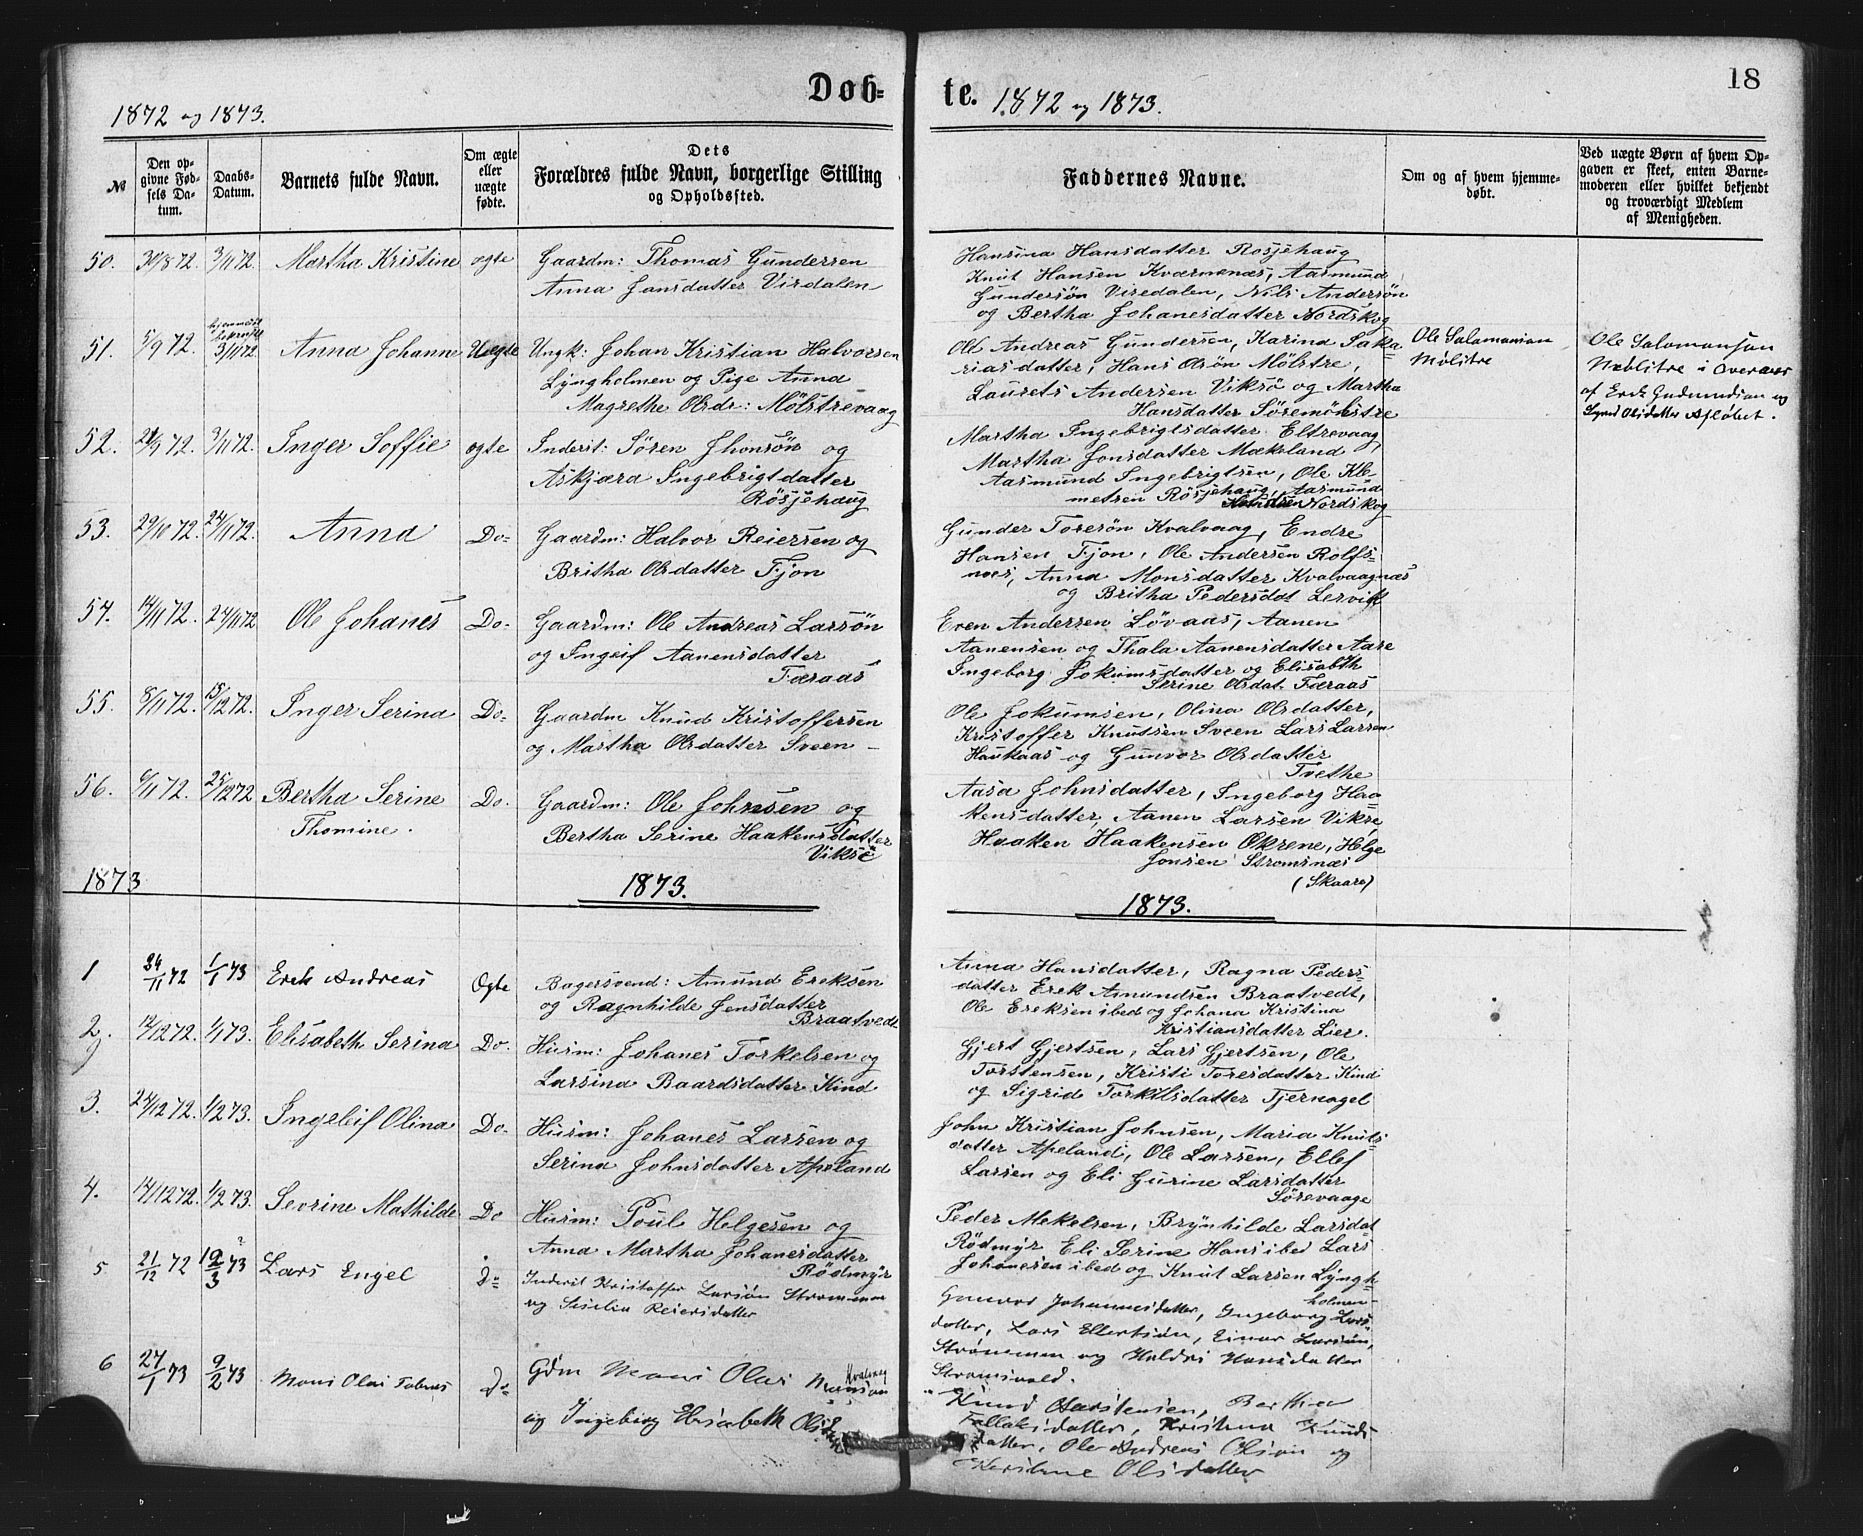 Døb-
te.
18
1872 og 1873.
1872 og 1873.
№
Den op-
givne Fød-
sels Da-
tum.
Daabs-
Datum.
Barnets fulde Navn.
Om ægte
eller
uægte
fødte.
Dets
Forældres fulde Navn, borgerlige Stilling
og Opholdssted.
Faddernes Navne.
Om og af hvem hjemme-
døbt.
Ved uægte Børn af hvem Op-
gaven er skeet, enten Barne-
moderen eller hvilket bekjendt
og troværdigt Medlem
af Menigheden.
50. 30/8 72. 3/11 72. Martha Kristine ægte
Gaardm: Thomas Gundersen
Anna Jansdatter Visdalen
Hansina Hansdatter Rosjehaug
Knut Hansen Kværnenæs, Aasmund
Gundersøn Visedalen, Nils Andersøn
og Bertha Johanesdatter Nordskog
51. 5/9 72. 3/11 72. Anna Johanne Uægte
Ungk: Johan Kristian Halvorsen
Lyngholmen og Pige Anna
Magrethe Olsdr: Mølstrevaag
Ole Andreas Gundersen, Karina Saka-
riasdatter, Hans Olsøn Mølstre,
Laurets Andersen Viksø og Martha
Hansdatter Søremølstre
Ole Salamonsen
Mølstre
Ole Salomonsøn
i
af Erik Gudmundsen og
52. 21/9 72. 3/11 72. Inger Soffie ægte
Inderst: Søren Jhonsøn og
Askjæra Ingebrigtdatter
Røsjehaug
Martha Ingebrigtsdatter Eltrevaag,
Martha Jonsdatter Mækeland
Aasmund Ingebrigtsen, Ole Kle-
metsen Røsjehaug, Aasmund
Nordskog
53. 29/10 72. 24/11 72. Anna Do-
Gaardm: Halvor Reiersen og
Britha Olsdatter Fjon
Gunder Toresøn Kvalvaag, Endre
Hansen Fjon, Ole Andersen Rolfs-
næs, Anna Monsdatter Kvalvaagnæs
og Britha Pedersdat Lervik
54. 14/11 72. 24/11 72 Ole Johanes Do-
Gaardm: Ole Andreas Larsøn
og Ingeif Aanensdatter
Færaas
Even Andersen Løvaas, Aanen
Aanensen og Thala Aanensdatter Aase
Ingeborg Jokumsdatter og Elisabth
Serine Olsdat Færaas
55. 8/11 72. 15/12 72. Inger Serina Do-
Gaardm Knud Kristoffersen
og Martha Olsdatter Sveen
Ole Jokumsen, Olina Olsdatter,
Kristoffer Knutsen Sveen Lars Larsen
Haukaas og Gunvor Olsdatter
Tvethe
56. 6/11 72. 25/12 72 Bertha Serine Do.
Thomine.
Gaardm: Ole Johnsen og
Bertha Serine Haakensdatter
Viksø
Aasa Johnsdatter, Ingeborg Haa-
kensdatter, Aanen Larsen Vikse,
Haaken Haakensen Økrene, Helge
Jonsen Stromsnæs
(Skaare)
1873 1873. 1873.
1 24/11 72 1/1 73 Erik Andreas Ægte
Bagersvend: Amund Ereksen
og Ragnhilde Jensdatter
Braatvedt
Anna Hansdatter, Ragna Peders-
datter Erek Amundsen Braatvedt,
Ole Ereksen ibed og Johana Kristina
Kristiansdatter Lier.
2. 12/12 72. 1/1 73. Elisabeth Serina Do.
Husm: Johanes Torkelsen og
Larsina Baardsdatter Kind
Gjert Gjertsen, Lars Gjertsen, Ole
Torstensen, Kristi Toresdatter Kind
og Sigrid Torkilsdatter Tjernagel
3. 24/12 72. 1/2 73. Ingeleif Olina Do-
Husm: Johanes Larsen og
Serina Johnsdatter Apeland
John Kristian Johnsen, Maria Knuts-
datter Apeland, Ole Larsen, Ellef
Larsen og Eli Gurine Larsdatter
Sørevaage
4. 14/12 72. 1/2 73. Sevrine Mathilde Do
Husm: Poul Helgesen og
Anna Martha Johanesdatter
Rødmyr
Peder Mekelsen, Brynhilde Larsdat
Rødmyr Eli Serine Hans ibed Lars
Johanesen ibed og Knut Larsen Lyngh-
holmen
5 21/12 72 12/3 73 Lars Engel Do
Inderst Kristoffer Larsøn Strømmen
og Siselia Reiersdatter
Gunvor Johannesdatter, Ingeborg Lars-
datter, Lars Ellertsøn, Einar Larsøn,
Strønemen og Haldri Hansdatter
Stromsvold.
6 27/1 73 9/2 73 Mons Olai Tobias Do
Gdm Mons Olai Monsøn
Kvalvaag
og Ingeborg Elisabeth
Knud Karstensen, Berthea
Fallaksdatter, Kristina Knuds-
datter, Ole Andreas Olsøn og
Kerstene Olsdatter